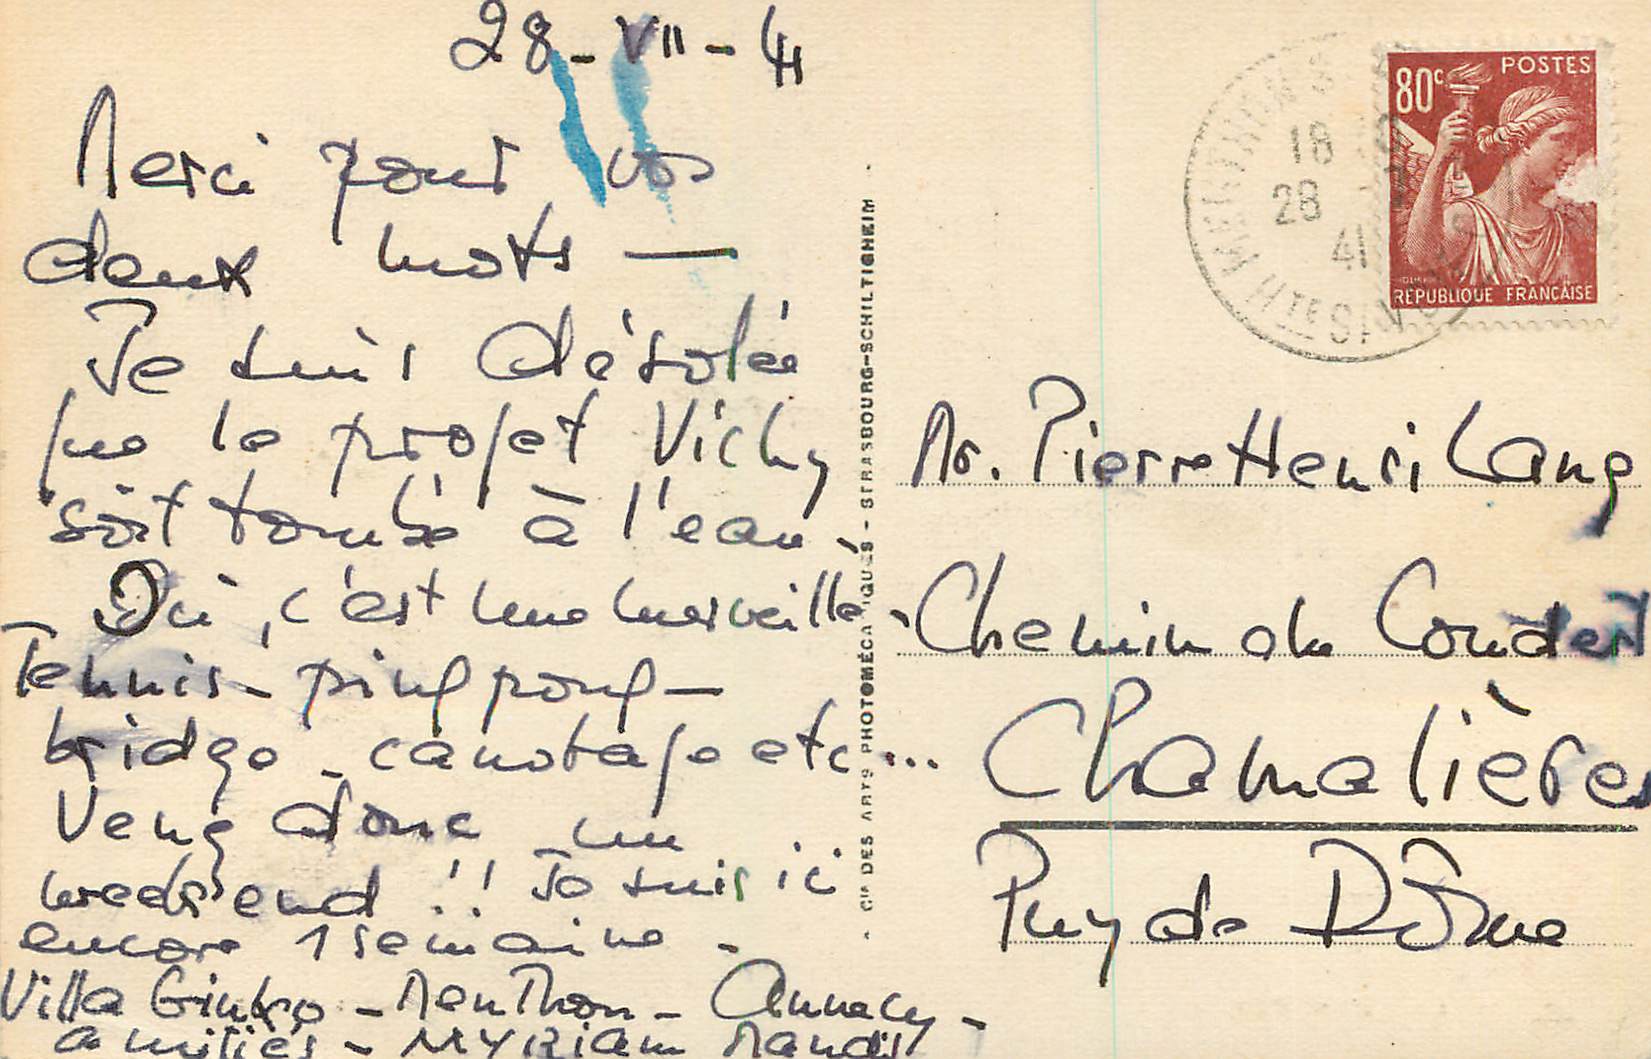 28 - VII - 41
Merci pour vos
deux mots —
Je suis désolée
que le projet Vichy
soit tombé à l'eau.
Oui, c'est une merveille.
Tennis - ping pong -
bridge - canotage etc...
Venez donc un
weekend !! Je suis ici
encore 1 semaine -
Villa Ginkgo - Menthon - Annecy -
amitiés - MYRiam
CIE DES ARTS PHOTOMÉCANIQUES - STRASBOURG-SCHILTIGHEIM
MENTHON
18
28
41
HTE SAVOIE
80c POSTES
RÉPUBLIQUE FRANÇAISE
Mr. Pierre Henri Lang
Chemin du Coudert
Chamalières
Puy de Dôme